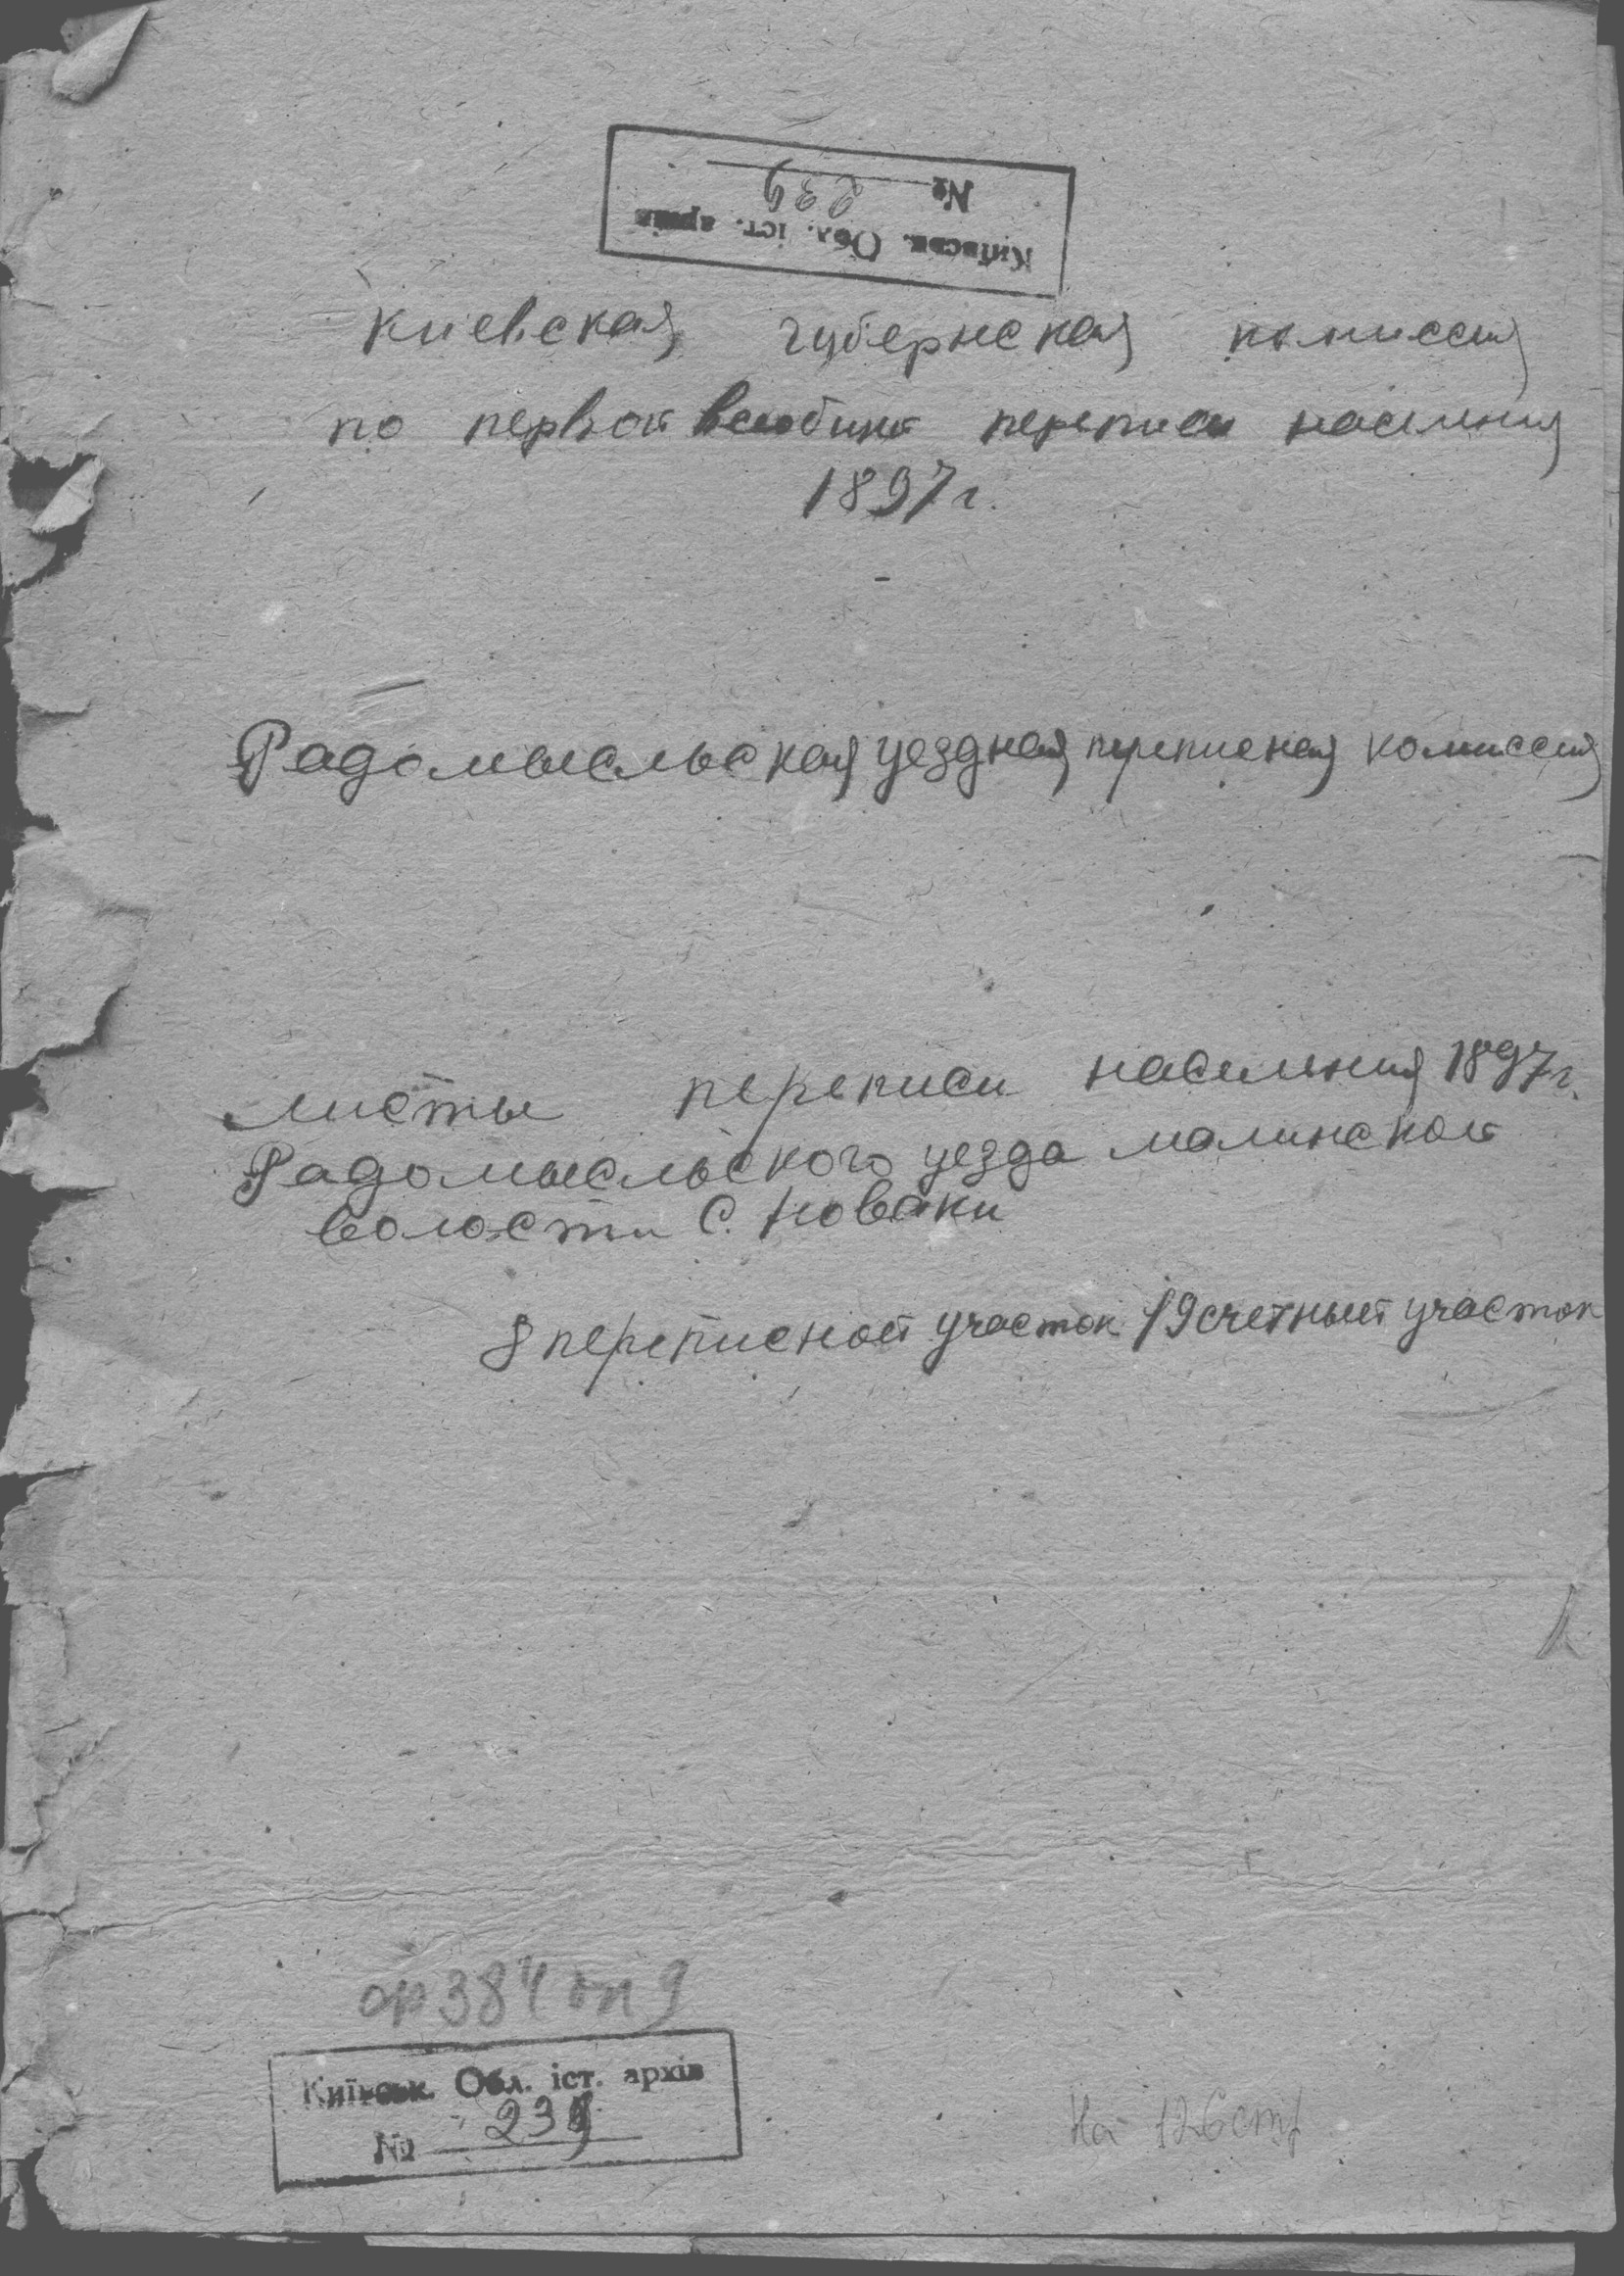 Київськ. Обл. іст. архів
№ 239
Киевская губернская комиссия
по первой всеобщей переписи населения
1897 г.
Радомысльская уездная переписная комиссия
Листы переписи населения 1897 г.
Радомысльского уезда Малинской
волости С. Новаки
8 переписной участок 19 счетный участок
ф 384 оп 9
Київськ. Обл. іст. архів
№ 239
На 126 стр